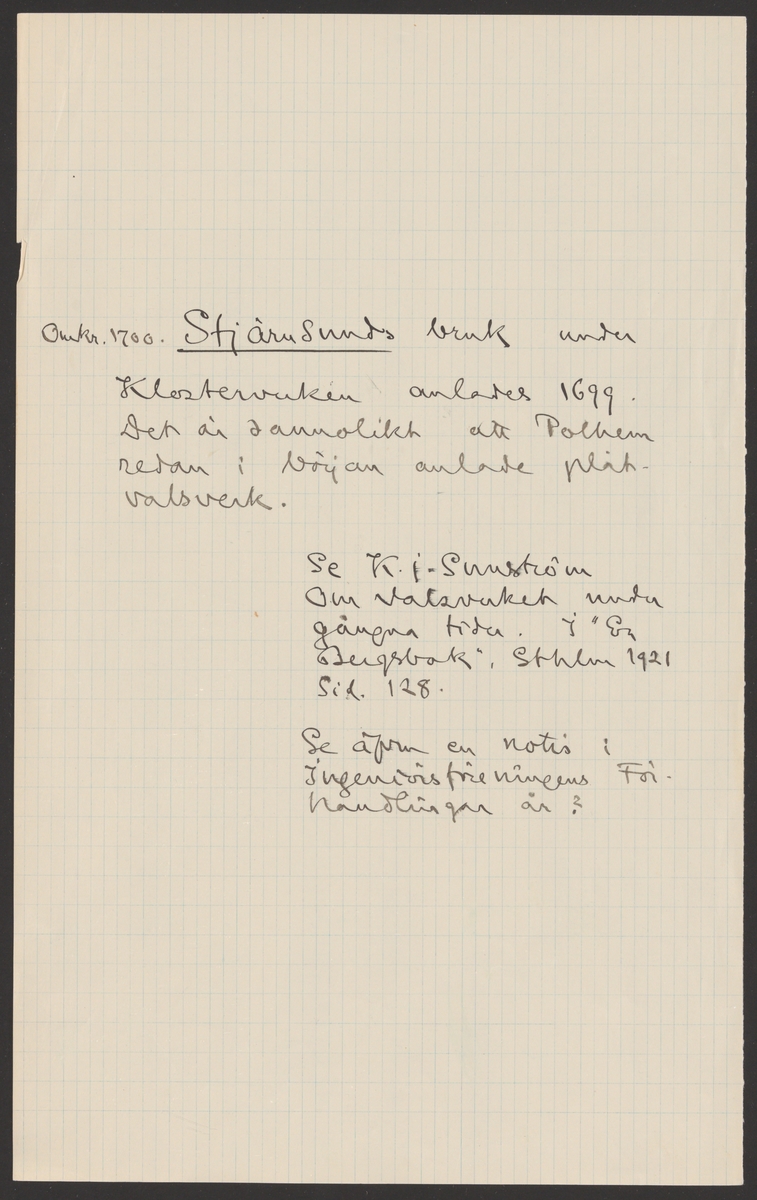 Omkr. 1700. Stjärnsunds bruk under
Klosterverken anlades 1699.
Det är sannolikt att Polhem
redan i början anlade plåt-
valsverk.
Se K. J. Sunström
Om valsverket under
gångna tider. I "En
Bergsbok", Sthlm 1921
Sid. 128.
Se äfven en notis i
Ingeniörsföreningens För-
handlingar år ?